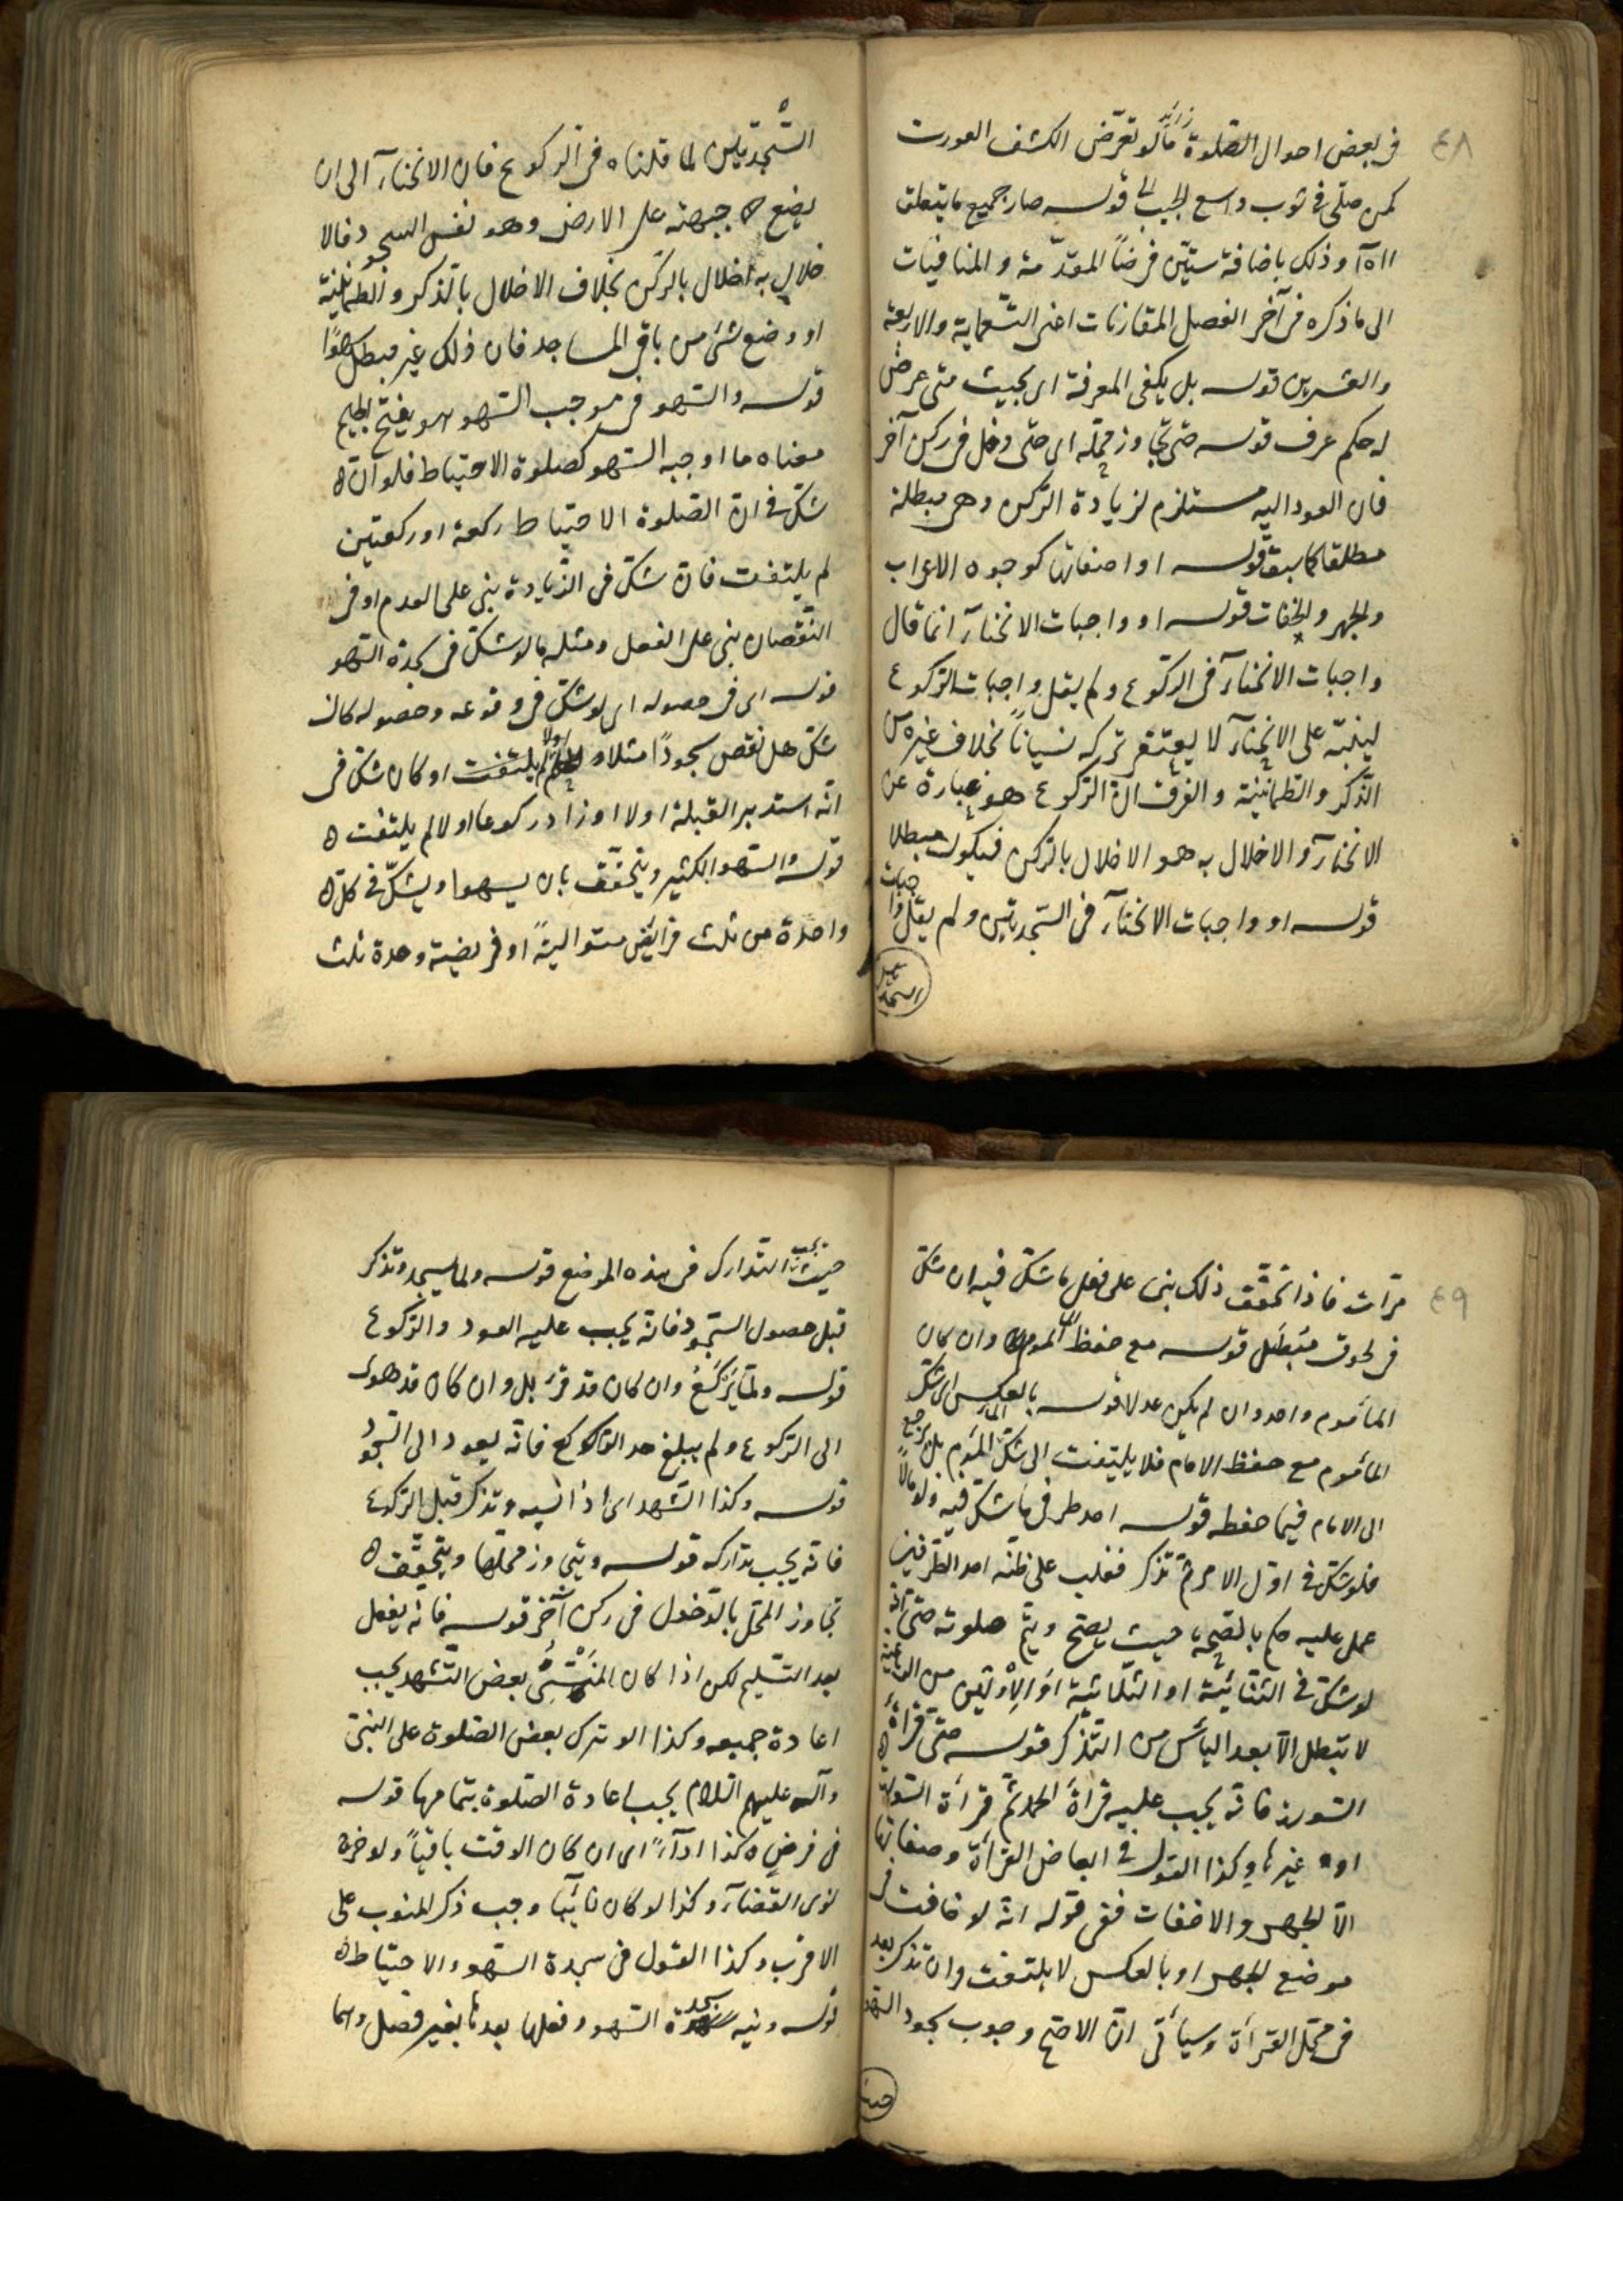 ٤٨
فى بعض احوال الصّلوة مالو تعرّض الكشف العورت
كمن صلّى فى ثوب واسع الجيب قوله صار جميع ما يتعلق
وذلك باضافة ستيّن فرضاً المقدّمة و المنافيات
الى ما ذكره فى آخر الفصل المقارنات اعنى التّسعماية والاربعة
والعشرين قوله بل يكفى المعرفة اى بحيث متى عرض
له حكم عرف قوله حتى تجاوز محلّه اى حتى دخل فى ركن آخر
فان العود اليه مستلزم لزيادة الرّكن وهى مبطلة
مطلقا كما سبق قوله او اصفاتها كوجوه الاعراب
والجهر والاخفات قوله او واجبات الانحنآء انما قال
واجبات الانحنآء فى الركوع ولم يقل واجبات الرّكوع
لينبّه على الانحنآء لا يغتفر تركه نسياناً بخلاف غيره من
الذّكر والطمانينة والفرق انّ الرّكوع هو عبارة عن
الانحنآء والاخلال به هو الاخلال بالرّكن فيكون مبطلا
قوله او واجبات الانحنآء فى السّجدتين ولم يقل واجبات
السّجدتين
السّجدتين لما قلناه فى الرّكوع فان الانحنآء الى ان
يضع جبهته على الارض وهو نفس السجود فالا
خلال به اخلال بالرّكن بخلاف الاخلال بالذكر والطمانينة
او وضع شئ من باقى المساجد فان ذلك غير مبطل سهوًا
قوله والسّهو فى موجب السّهو هو بفتح الجيم
معناه ما اوجبه السّهو كصلوة الاحتياط فلو انّه
شكّ فى انّ الصّلوة الاحتياط ركعة او ركعتين
لم يلتفت فان شكّ فى الزّيادة بنى على العدم او فى
النّقصان بنى على الفعل ومثله مالو شكّ فى سجدة السّهو
قوله اى فى حصوله اى لو شكّ فى وقوعه وحصوله كان
شكّ هل نقص سجودًا مثلا اولا لم يلتفت او كان شكّ فى
انّه استدبر القبلة اولا او زاد ركوعا اولا لم يلتفت
قوله والسّهو الكثير ويتحقّق بان يسهوا ويشكّ فى كلّ
واحدة من ثلث فرائض متواليةً او فريضية وحدة ثلث
٤٩
مرّات فاذا تحقّق ذلك بنى على فعل ما شكّ فيه ان شكّ
فى لحوق مبطل قوله مع حفظ الماموم وان كان
المأموم واحد وان لم يكن عدلا قوله بالعكس اى شكّ
المأموم مع حفظ الامام فلا يلتفت الى شكّ المأموم بل يرجع
الى الامام فيما حفظه قوله احد طرفى ما شكّ فيه ولو مآلاً
فلو شكّ فى اوّل الامر ثمّ تذكر فغلب على ظنّه احد الطّرفين
عمل عليه حكم بالصّحة حيث يصح ويتمّ صلوته حتى انّه
لو شكّ فى الثنائيّة او الثلاثيّة او الاوّلتين من الرباعيّة
لا تبطل الّا بعد اليأس من التّذكّر قوله حتى قرأ
السّورة فانّه يجب عليه قرأة الحمد ثمّ قرأة السّورة
او غيرها وكذا القول فى ابعاض القرأة وصفاتها
الّا الجهر والاخفات ففى قوله انّه لو خافت فى
موضع الجهر او بالعكس لا يلتفت وان تذكر بعد
فى محلّ القرأة وسيأتى انّ الاصحّ وجوب سجود السّهو
حيث
حيث يجب التّدارك فى هذه الموضع قوله ولما يسجد وتذكر
قبل حصول السّجود فانّه يجب عليه العود والرّكوع
قوله ولمّا يركع وان كان قد قرء بل وان كان قد هوى
الى الرّكوع ولم يبلغ حد الرّاكع فانّه يعود الى السّجود
قوله وكذا التشّهد اى اذا نسيه وتذكر قبل الرّكوع
فانّه يجب تداركه قوله ويتجاوز محلّها ويتحقّق
تجاوز المحلّ بالدّخول فى ركن آخر قوله فانّه يفعل
بعد التّسليم لكن اذا كان المنسىّ بعض التّشهد يجب
اعادة جميعه وكذا لو ترك بعض الصّلوة على النبىّ
وآله عليهم السّلام يجب اعادة الصّلوة بتمامها قوله
فى فرض كذا ادآءً اى ان كان الوقت باقياً ولو خرج
نوى القضآء وكذا لو كان نائبًا وجب ذكر المنوب على
الاقرب وكذا القول فى سجدة السّهو والاحتياط
قوله ونيه سجدة السّهو وفعلها بعدها بغير فصل واما